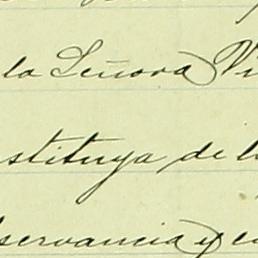 la Señora Vi
stituya de l
servancia y e